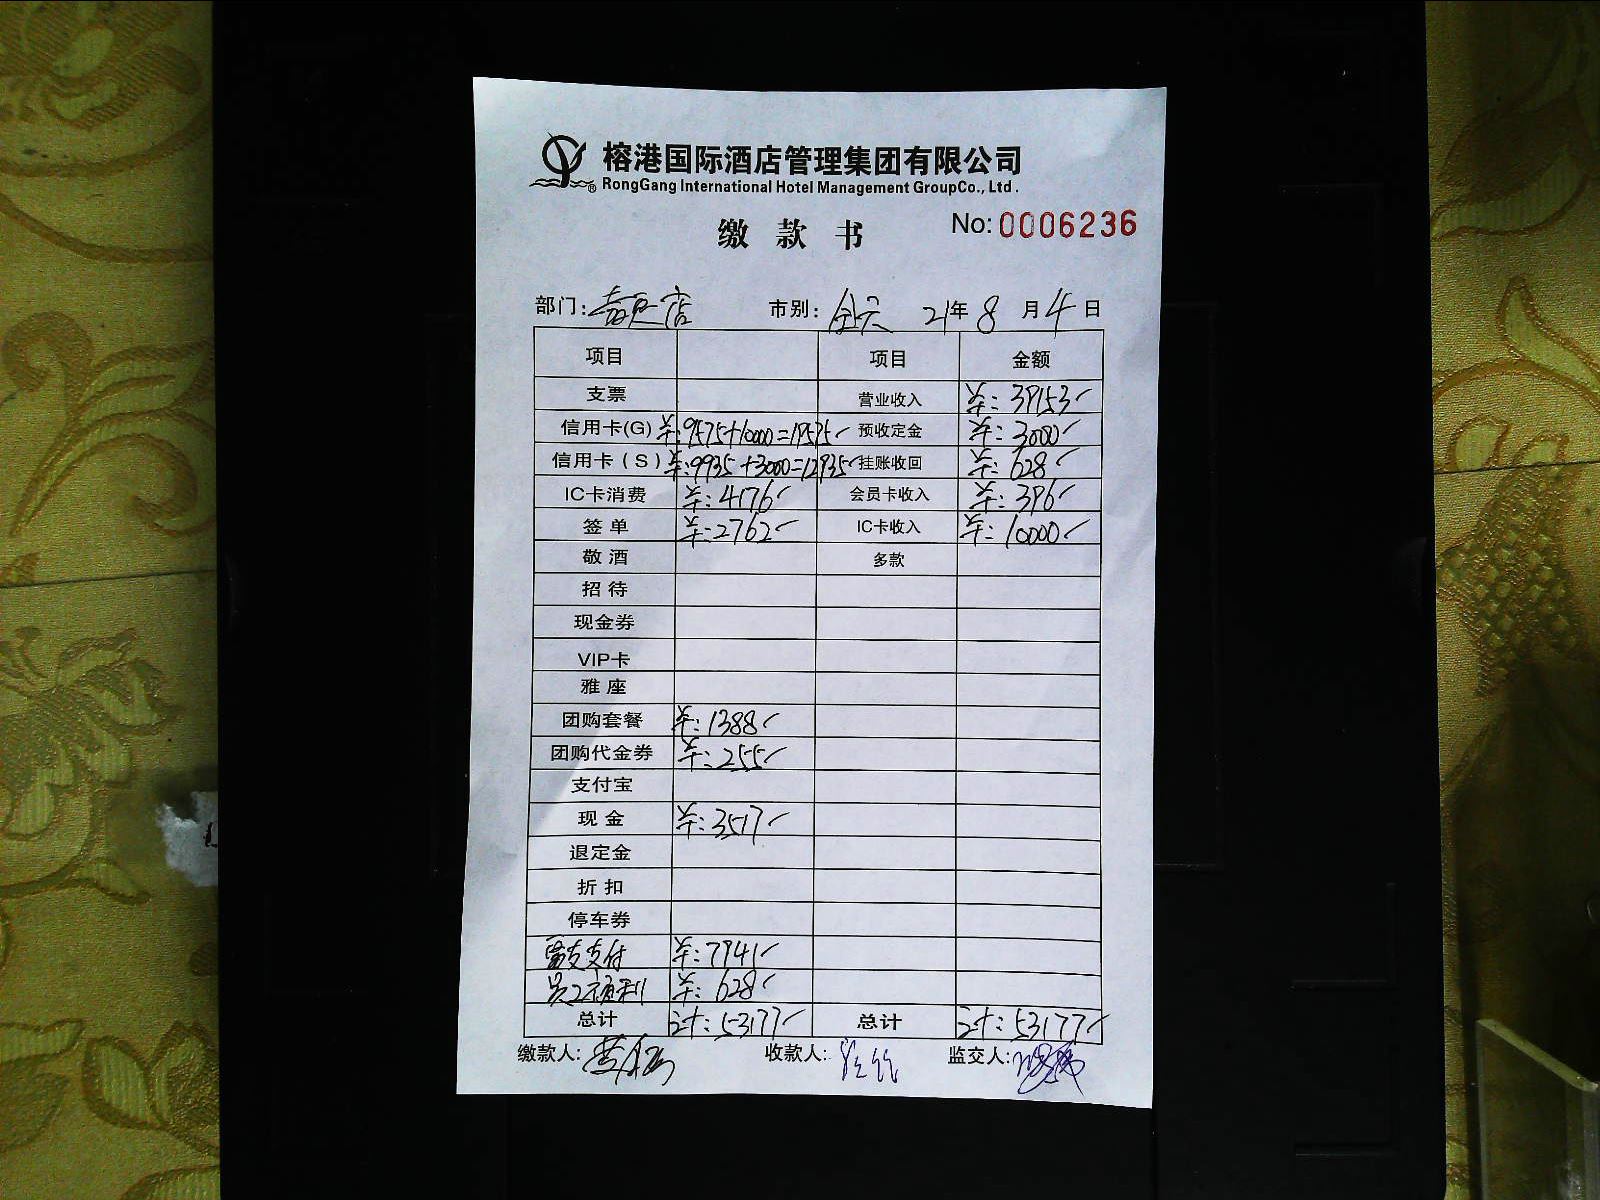 榕港国际酒店管理集团有限公司
RongGang International Hotel Management GroupCo., Ltd.
缴款书 No: 0006236
部门: 店 市别: 全天 21年 8 月 4 日
项目 项目 金额
支票 营业收入 39153
信用卡(G) 9575+10000=19575 预收定金 3000
信用卡(S) 9935+3000=12935 挂账收回 628
IC卡消费 4176 会员卡收入 396
签单 2762 IC卡收入 10000
敬酒 多款
招待
现金券
VIP卡
雅座
团购套餐 1388
团购代金券 255
支付宝
现金 3517
退定金
折扣
停车券
支付 7941
员工福利 628
总计 计: 53177 总计 计: 53177
缴款人: 收款人: 监交人: